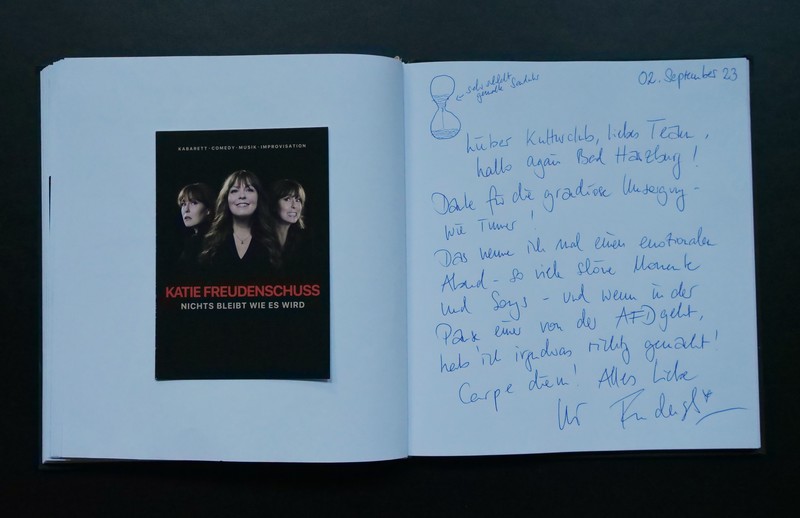 KABARETT · COMEDY · MUSIK · IMPROVISATION
KATIE FREUDENSCHUSS
NICHTS BLEIBT WIE ES WIRD
← sehr schlecht
gemalte Sanduhr
02. September 23
Lieber Kulturclub, liebes Team,
hallo again Bad Harzburg!
Danke für die grandiose Umsorgung -
wie immer!
Das nenne ich mal einen emotionalen
Abend - so viele schöne Momente
und Songs - und wenn in der
Pause einer von der AFD geht,
hab' ich irgendwas richtig gemacht!
Carpe diem! Alles Liebe